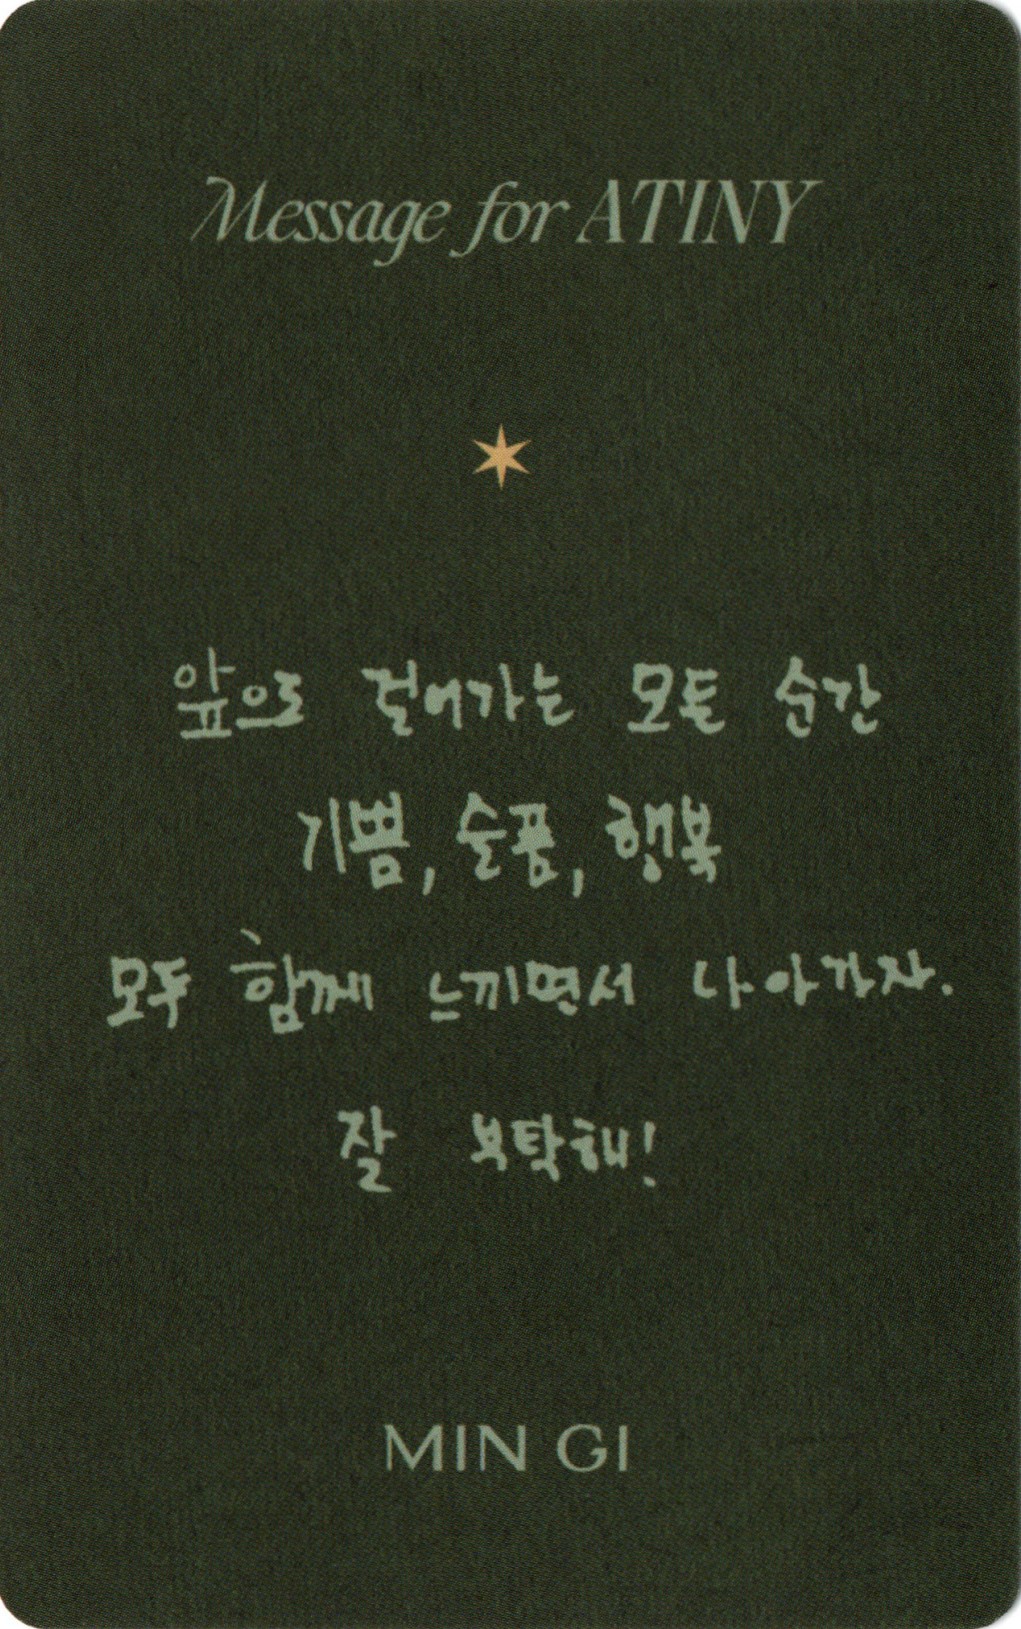 Message for ATINY
앞으로 걸어가는 모든 순간
기쁨, 슬픔, 행복
모두 함께 느끼면서 나아가자.
잘 부탁해!
MIN GI